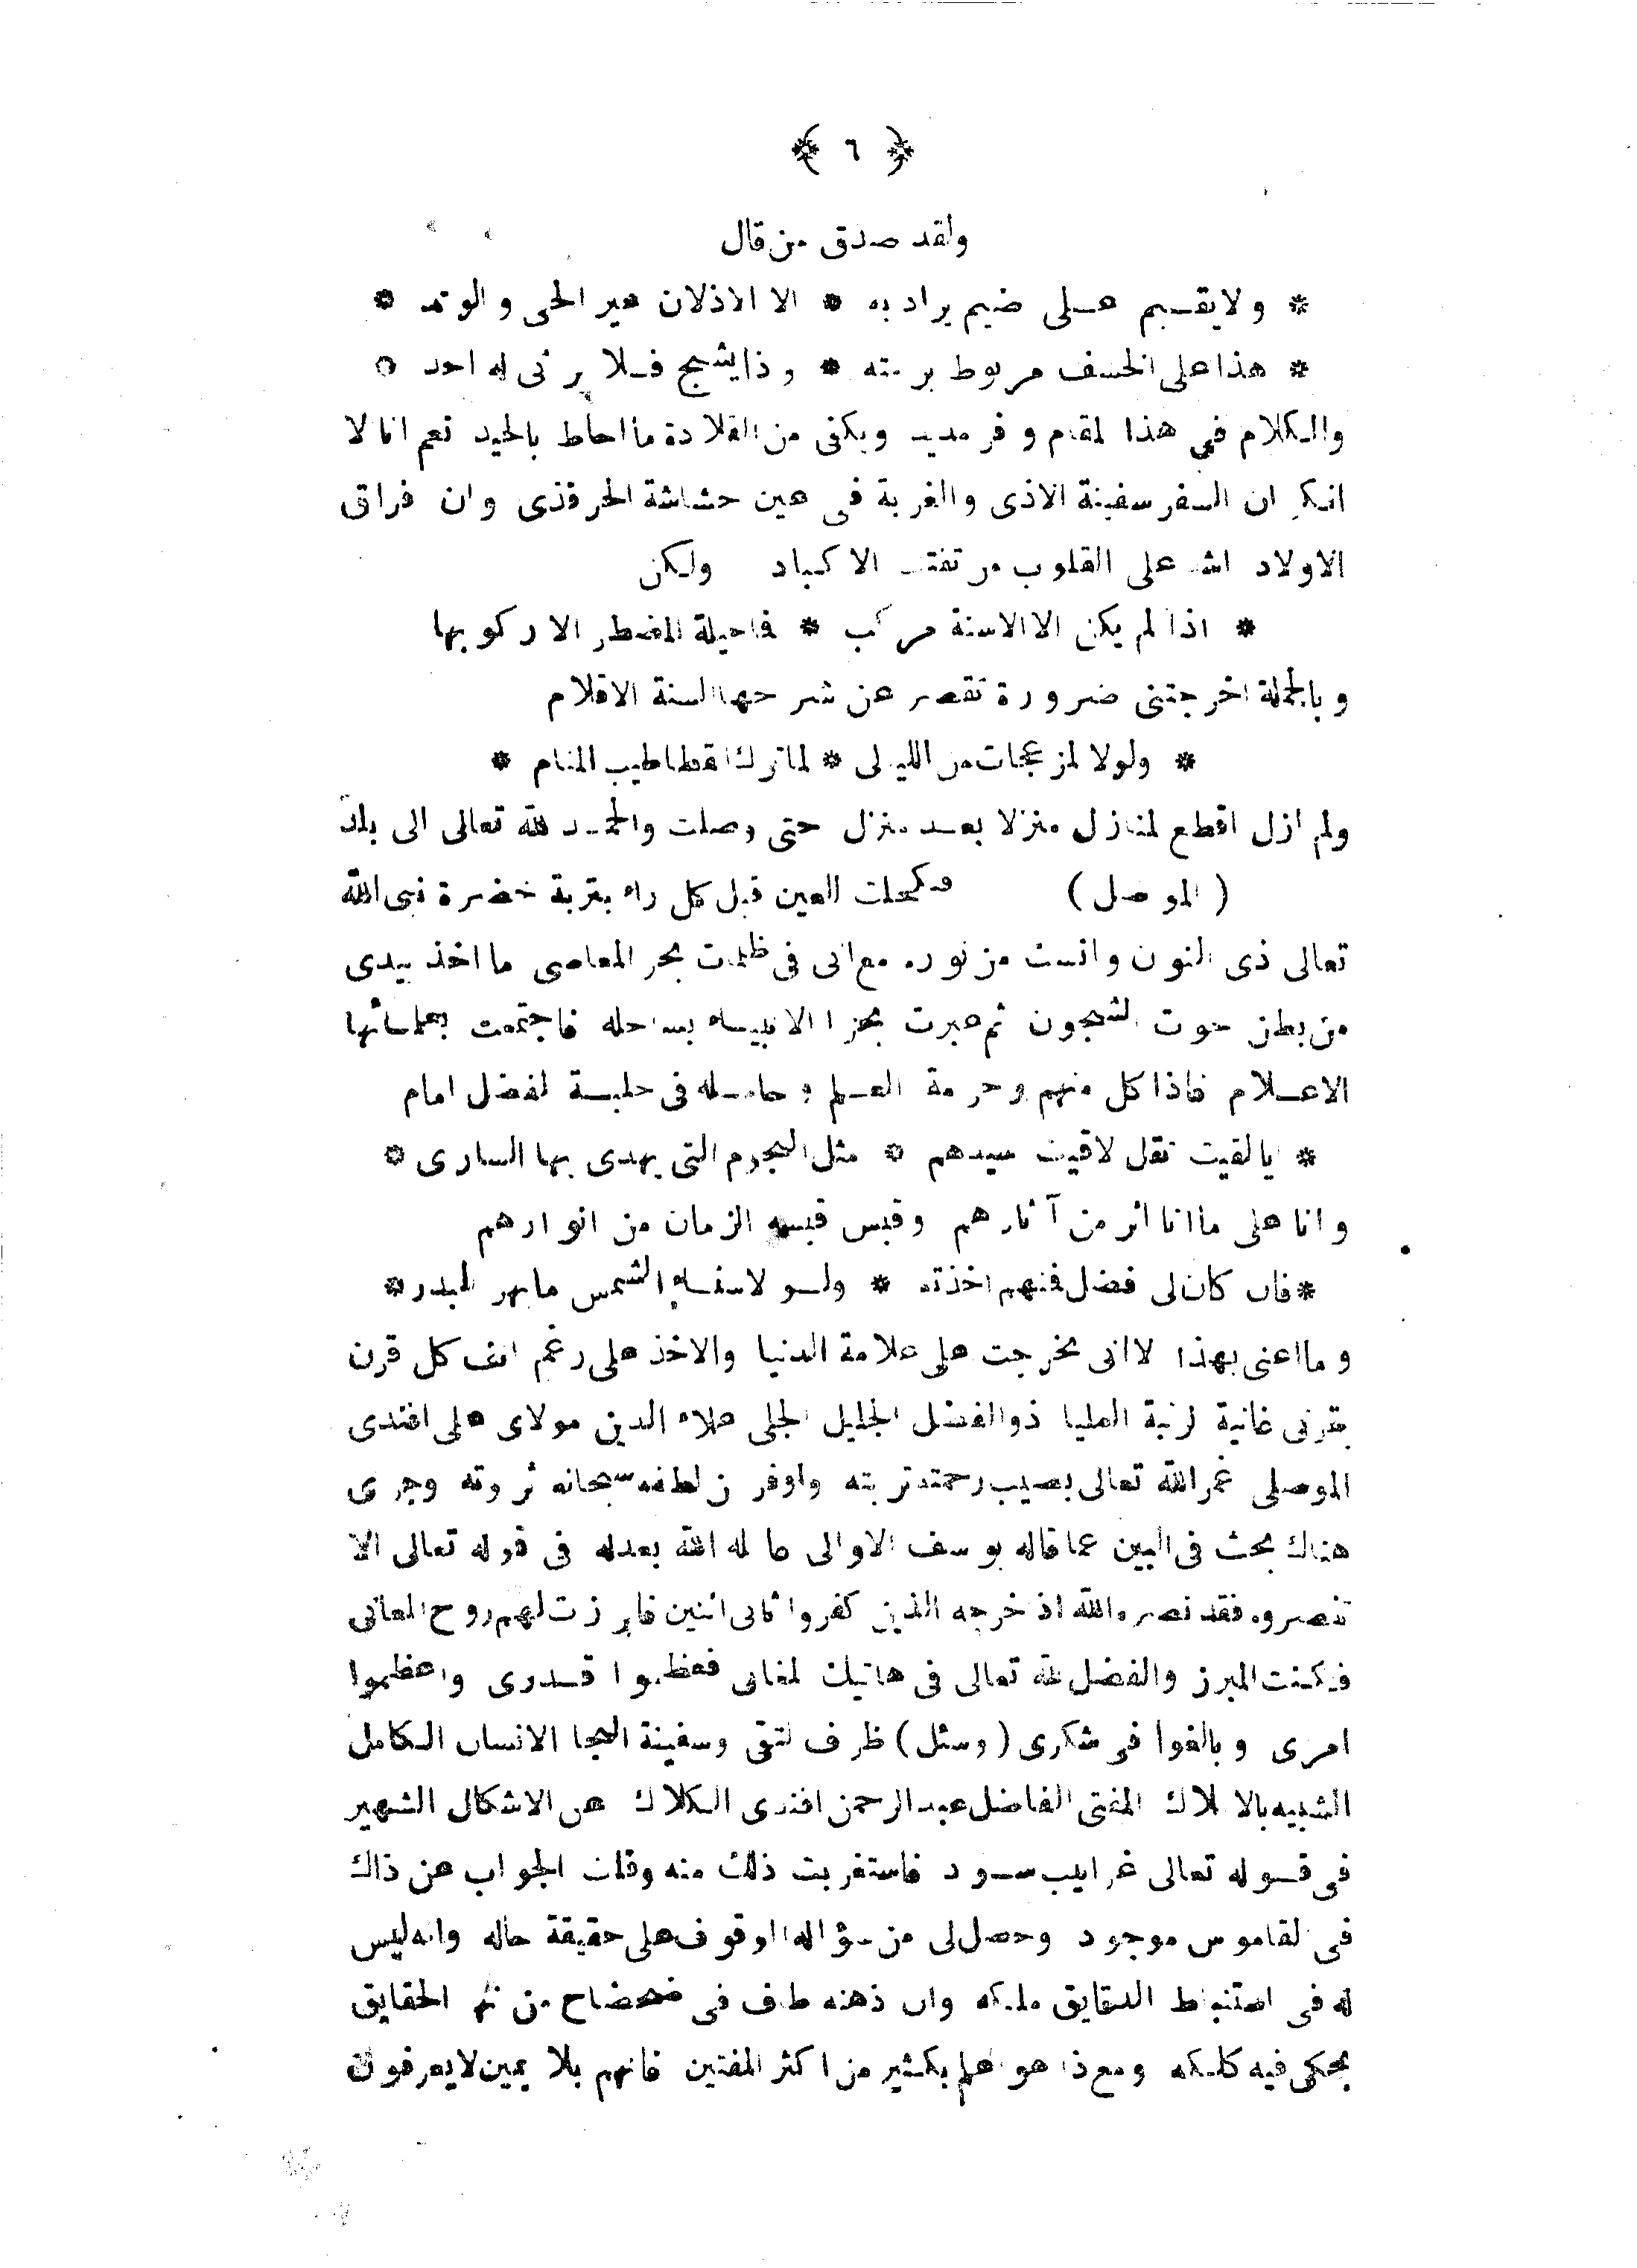 ﴿ ٦ ﴾
ولقد صدق من قال
* ولا يقيم على ضيم يراد به * الا الاذلان عير الحى والوتد *
* هذا على الخسف مربوط برمته * وذا يشج فلا يرثى له احد *
والكلام فى هذا المقام وفر مديد ويكفى من القلادة ما احاط بالجيد نعم انا لا
انكر ان السفر سفينة الاذى والغربة فى عين حشاشة الحر قذى وان فراق
الاولاد اشد على القلوب من تفتت الاكباد ولكن
* اذا لم يكن الا الاسنة مركب * فما حيلة المضطر الا ركوبها
وبالجملة اخرجتنى ضرورة تقصر عن شرحها السنة الاقلام
* ولولا المزعجات من الليالى * لما ترك القطا طيب المنام *
ولم ازل اقطع المنازل منزلا بعد منزل حتى وصلت والحمد لله تعالى الى بلد
(الموصل) فكحلت العين قبل كل راء بتربة حضرة نبى الله
تعالى ذى النون وانست من نوره مع انى فى ظلمات بحر المعاصى ما اخذ بيدى
من بطن حوت الشجون ثم عبرت بحر الانبياء بساحله فاجتمعت بعلمائها
الاعلام فاذا كل منهم وحرمة العلم وحامله فى حلبة الفضل امام
* ايا لقيت تقل لاقيت سيدهم * مثل النجوم التى يهدى بها السارى *
وانا على ما انا اثر من آثارهم وقبس قبسه الزمان من انوارهم
* فان كان لى فضل فمنهم اخذته * ولو لا سناء الشمس ما بهر البدر *
وما اعنى بهذا الا انى تخرجت على علامة الدنيا والاخذ على رغم انف كل قرن
بقرنى غانية الرتبة العليا ذو الفضل الجليل الجلى علاء الدين مولاى على افندى
الموصلى غمر الله تعالى بصيب رحمته تربته واوفر من لطفه سبحانه ثروته وجرى
هناك بحث فى البين عما قاله يوسف الاوالى عامله الله بعدله فى قوله تعالى الا
تنصروه فقد نصره الله اذ اخرجه الذين كفروا ثانى اثنين فابرزت لهم روح المعانى
فكنت المبرز والفضل لله تعالى فى هاتيك المغانى فعظموا قدرى واعظموا
امرى وبالغوا فى شكرى (وسئل) ظرف التقى وسفينة الحجا الانسان الكامل
الشبيه بالاملاك المفتى الفاضل عبد الرحمن افندى الكلاك عن الاشكال الشهير
فى قوله تعالى غرابيب سود فاستغربت ذلك منه وقلت الجواب عن ذاك
فى القاموس موجود وحصل لى من سؤاله الوقوف على حقيقة حاله وانه ليس
له فى استنباط الدقايق ملكه وان ذهنه طاف فى ضحضاح من الحقايق
يحكى فيه كلكه ومع ذا هو اعلم بكثير من اكثر المفتين فانهم بلا يمين لا يعرفون